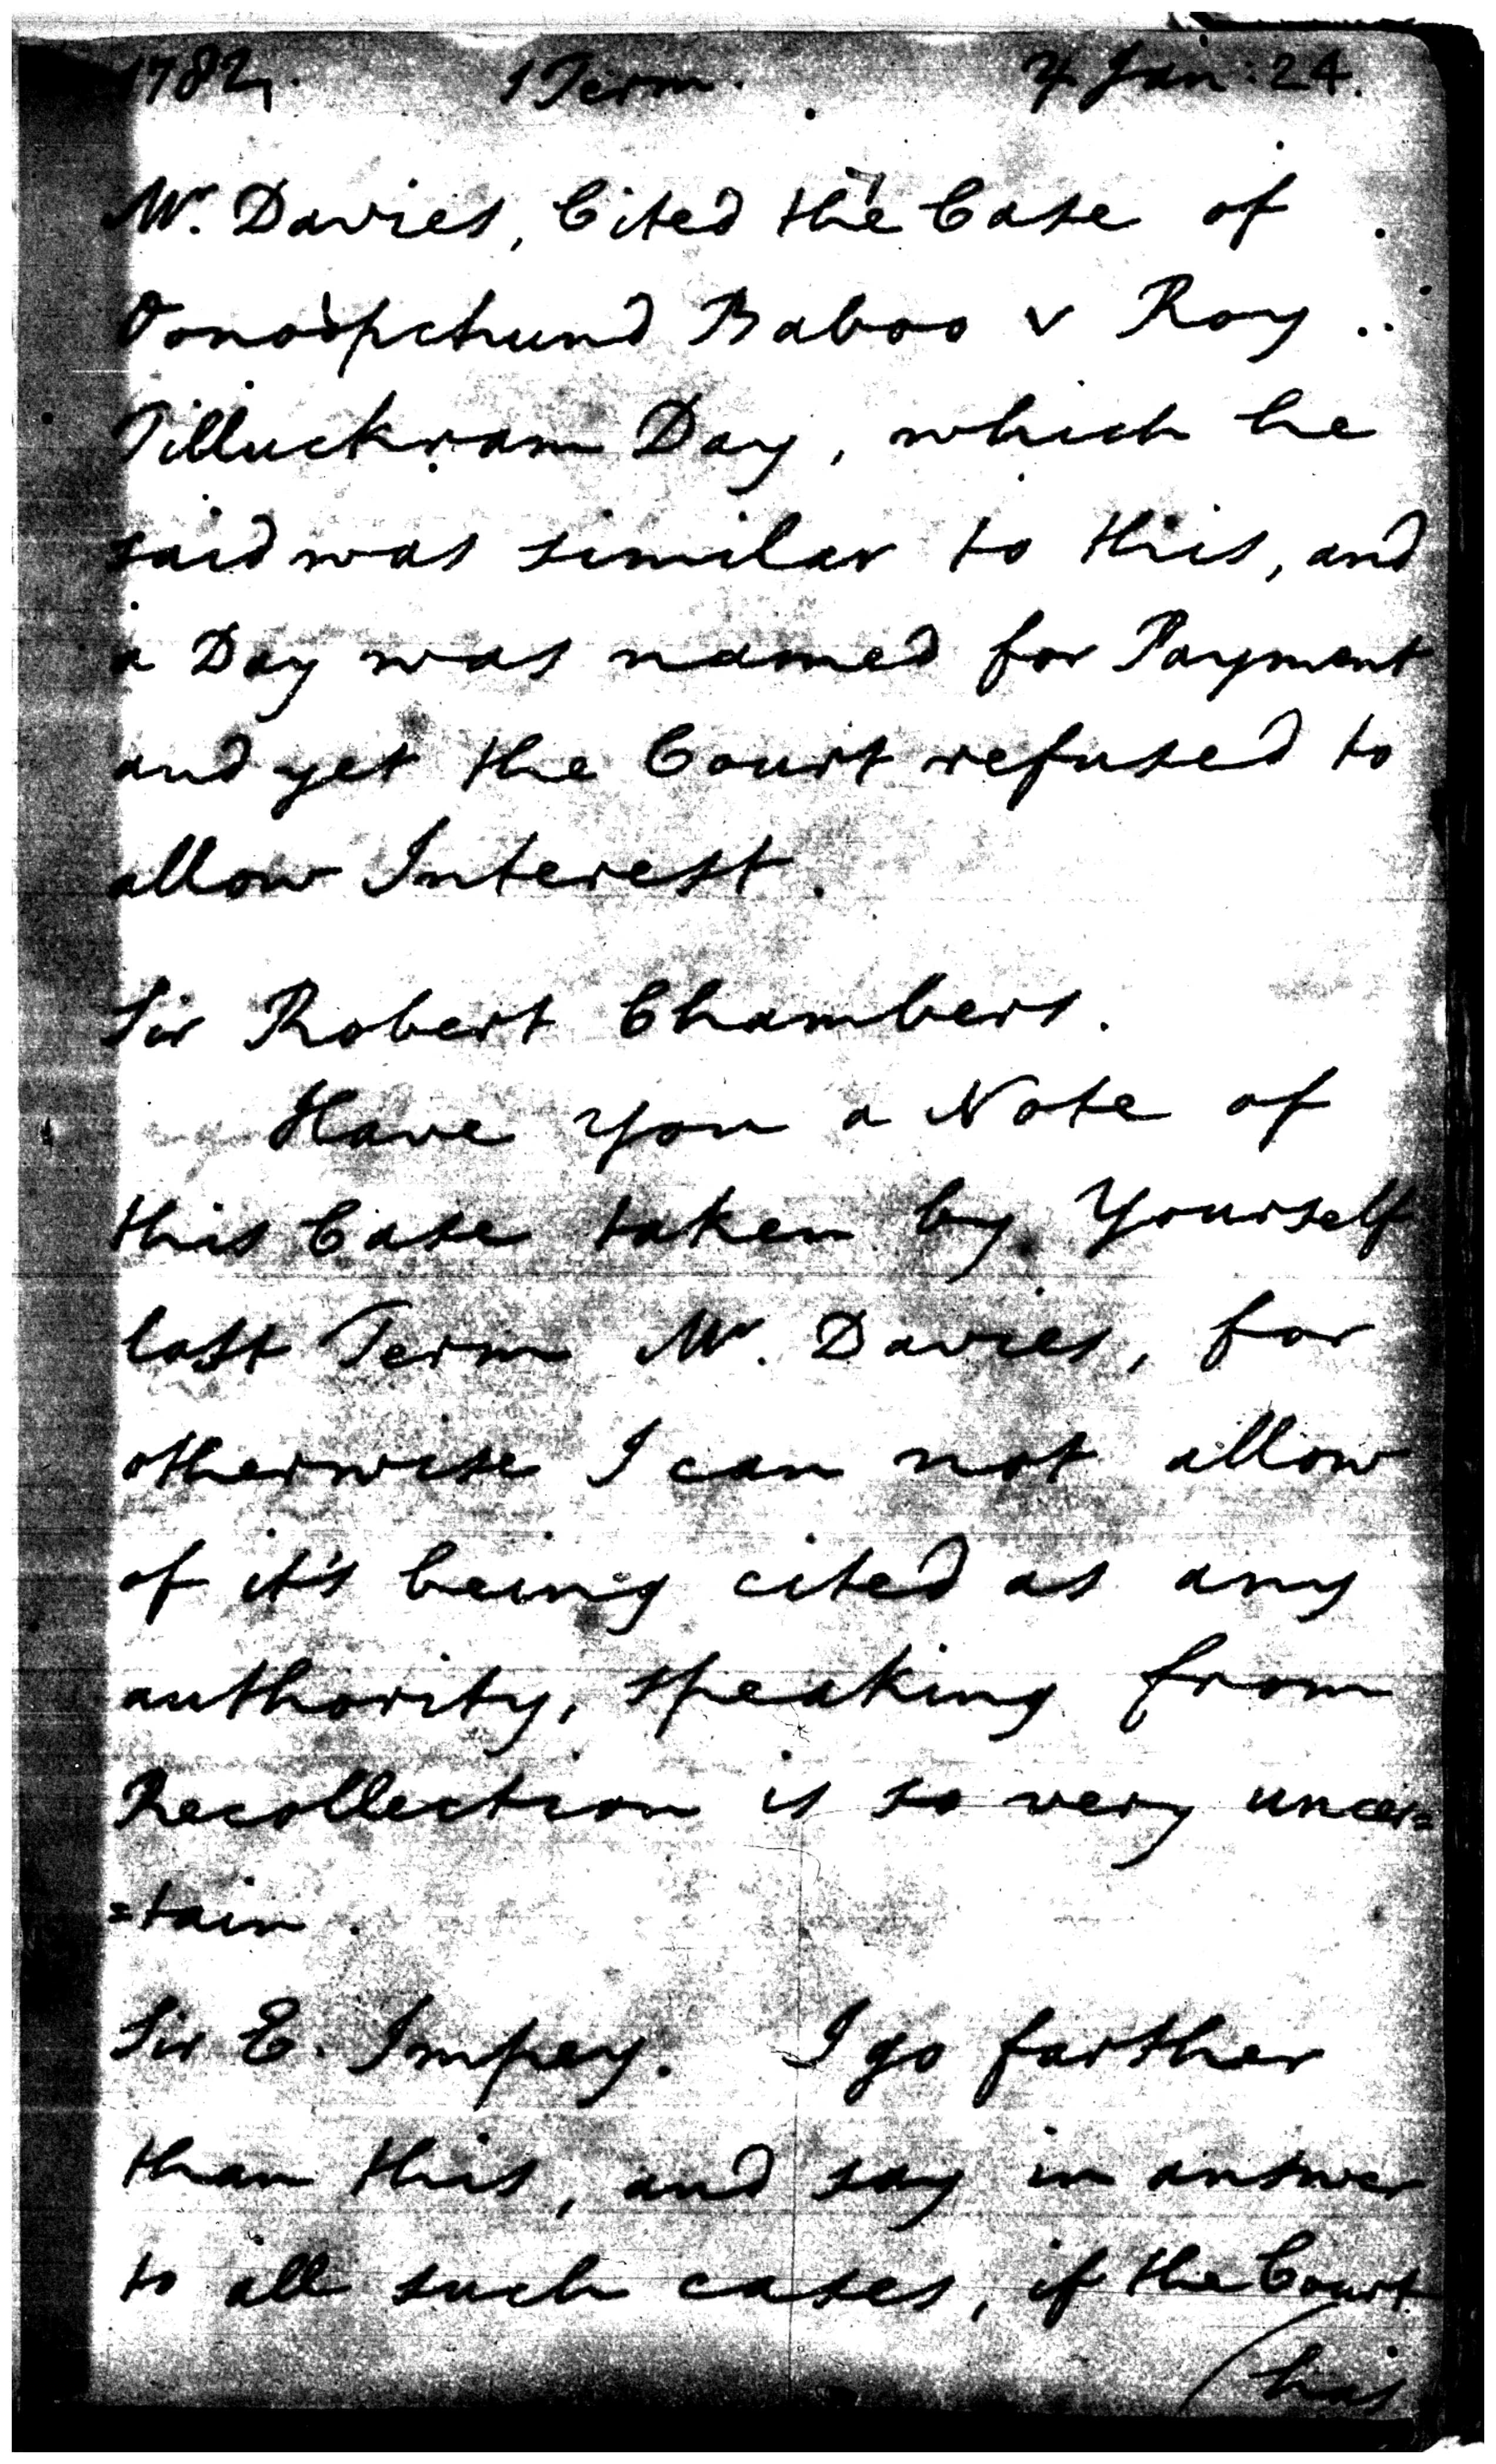 1782. 1 Term. ♃ Jan: 24.
Mr. Davies, Cited the Case of
Baboo v Roy ..
Tilluckram Day, which he
said was similar to this, and
a Day was named for Payment
and yet the Court refused to
allow Interest.
Sir Robert Chambers.
Have You a Note of
this Case taken by Yourself
last Term Mr. Davies, for
otherwise I can not allow
of it's being cited as any
authority, speaking from
Recollection is so very uncer=
=tain.
Sir E. Impey. I go farther
than this, and say in answer
to all such cases, if the Court
(has